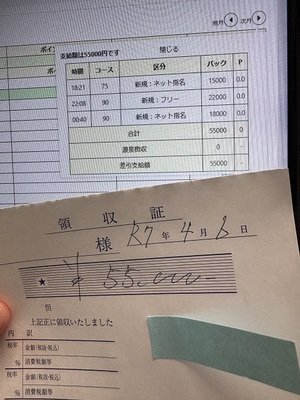 前月 次月
ポイン
ポー
支給額は55000円です 閉じる
時間 コース 区分 バック P
18:21 75 新規：ネット指名 15000 0.0
22:08 90 新規：フリー 22000 0.0
00:40 90 新規：ネット指名 18000 0.0
合計 55000 0
源泉徴収 0 -
差引支給額 55000 -
領収証
様 R7年4月6日
★ ¥55,000-
但
上記正に領収いたしました
内訳
税率 金額(税抜・税込)
% 消費税額等
税率 金額(税抜・税込)
% 消費税額等